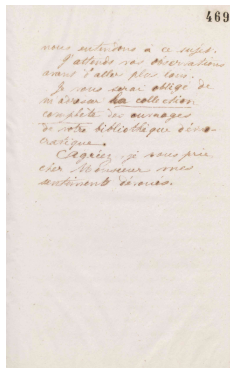 469
nous entendons à ce sujet.
J'attends vos observations
avant d'aller plus loin.
Je vous serai obligé de
m'adresser la collection
complète des ouvrages
de votre bibliothèque démo-
cratique.
Agréez, je vous prie
cher Monsieur mes
sentiments dévoués.